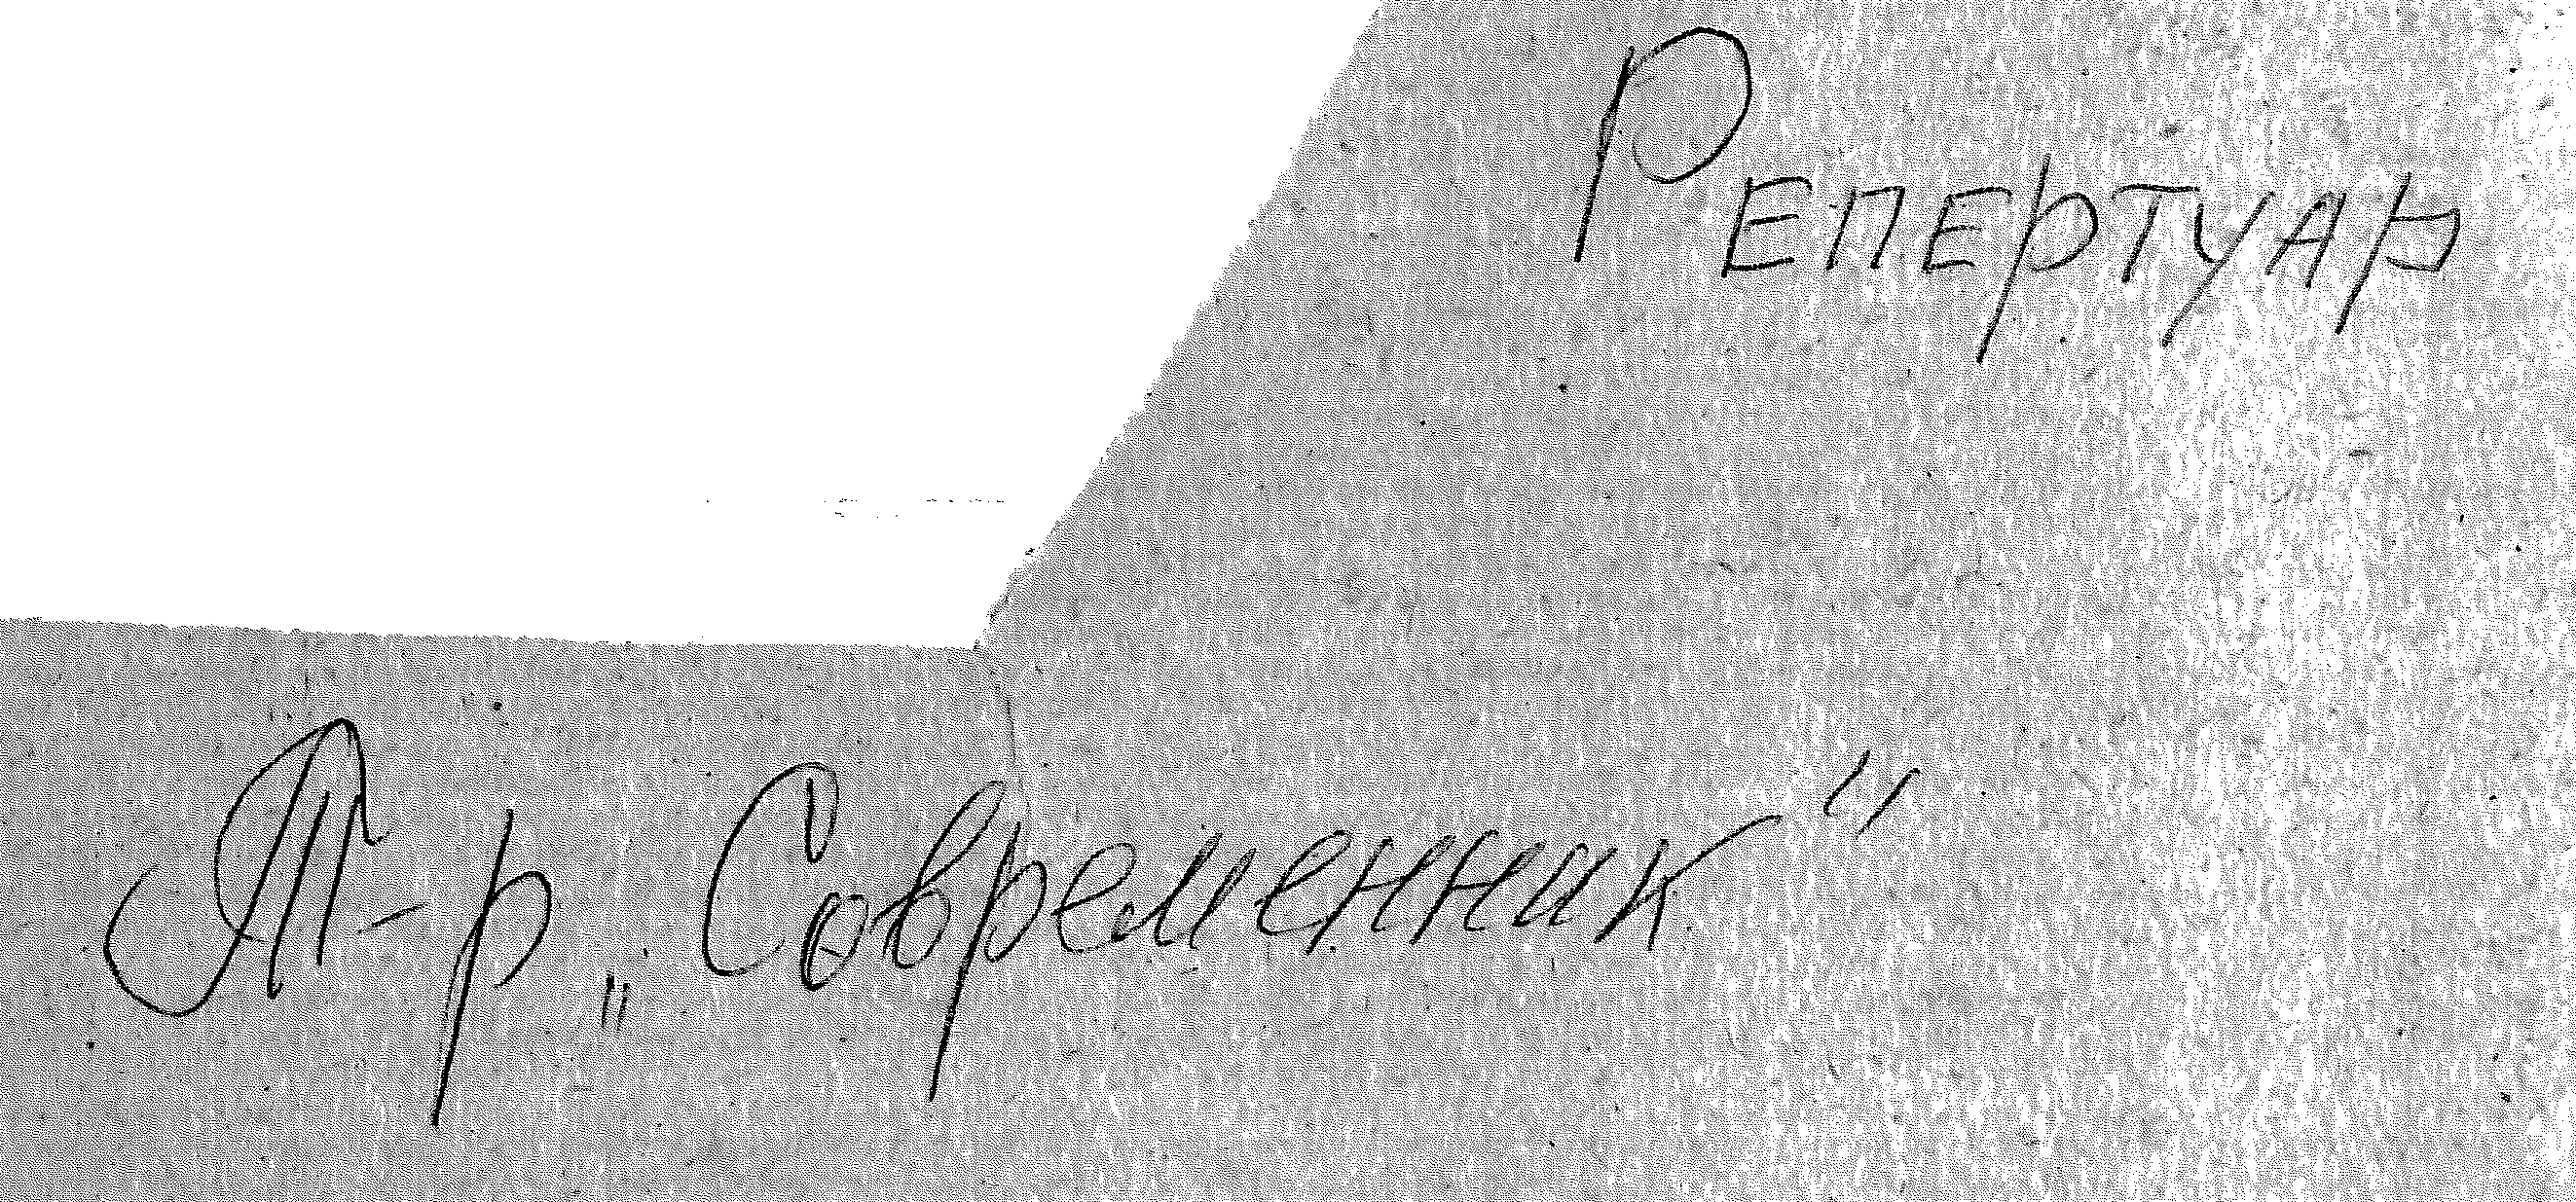 Репертуар
Т-р „Современник“